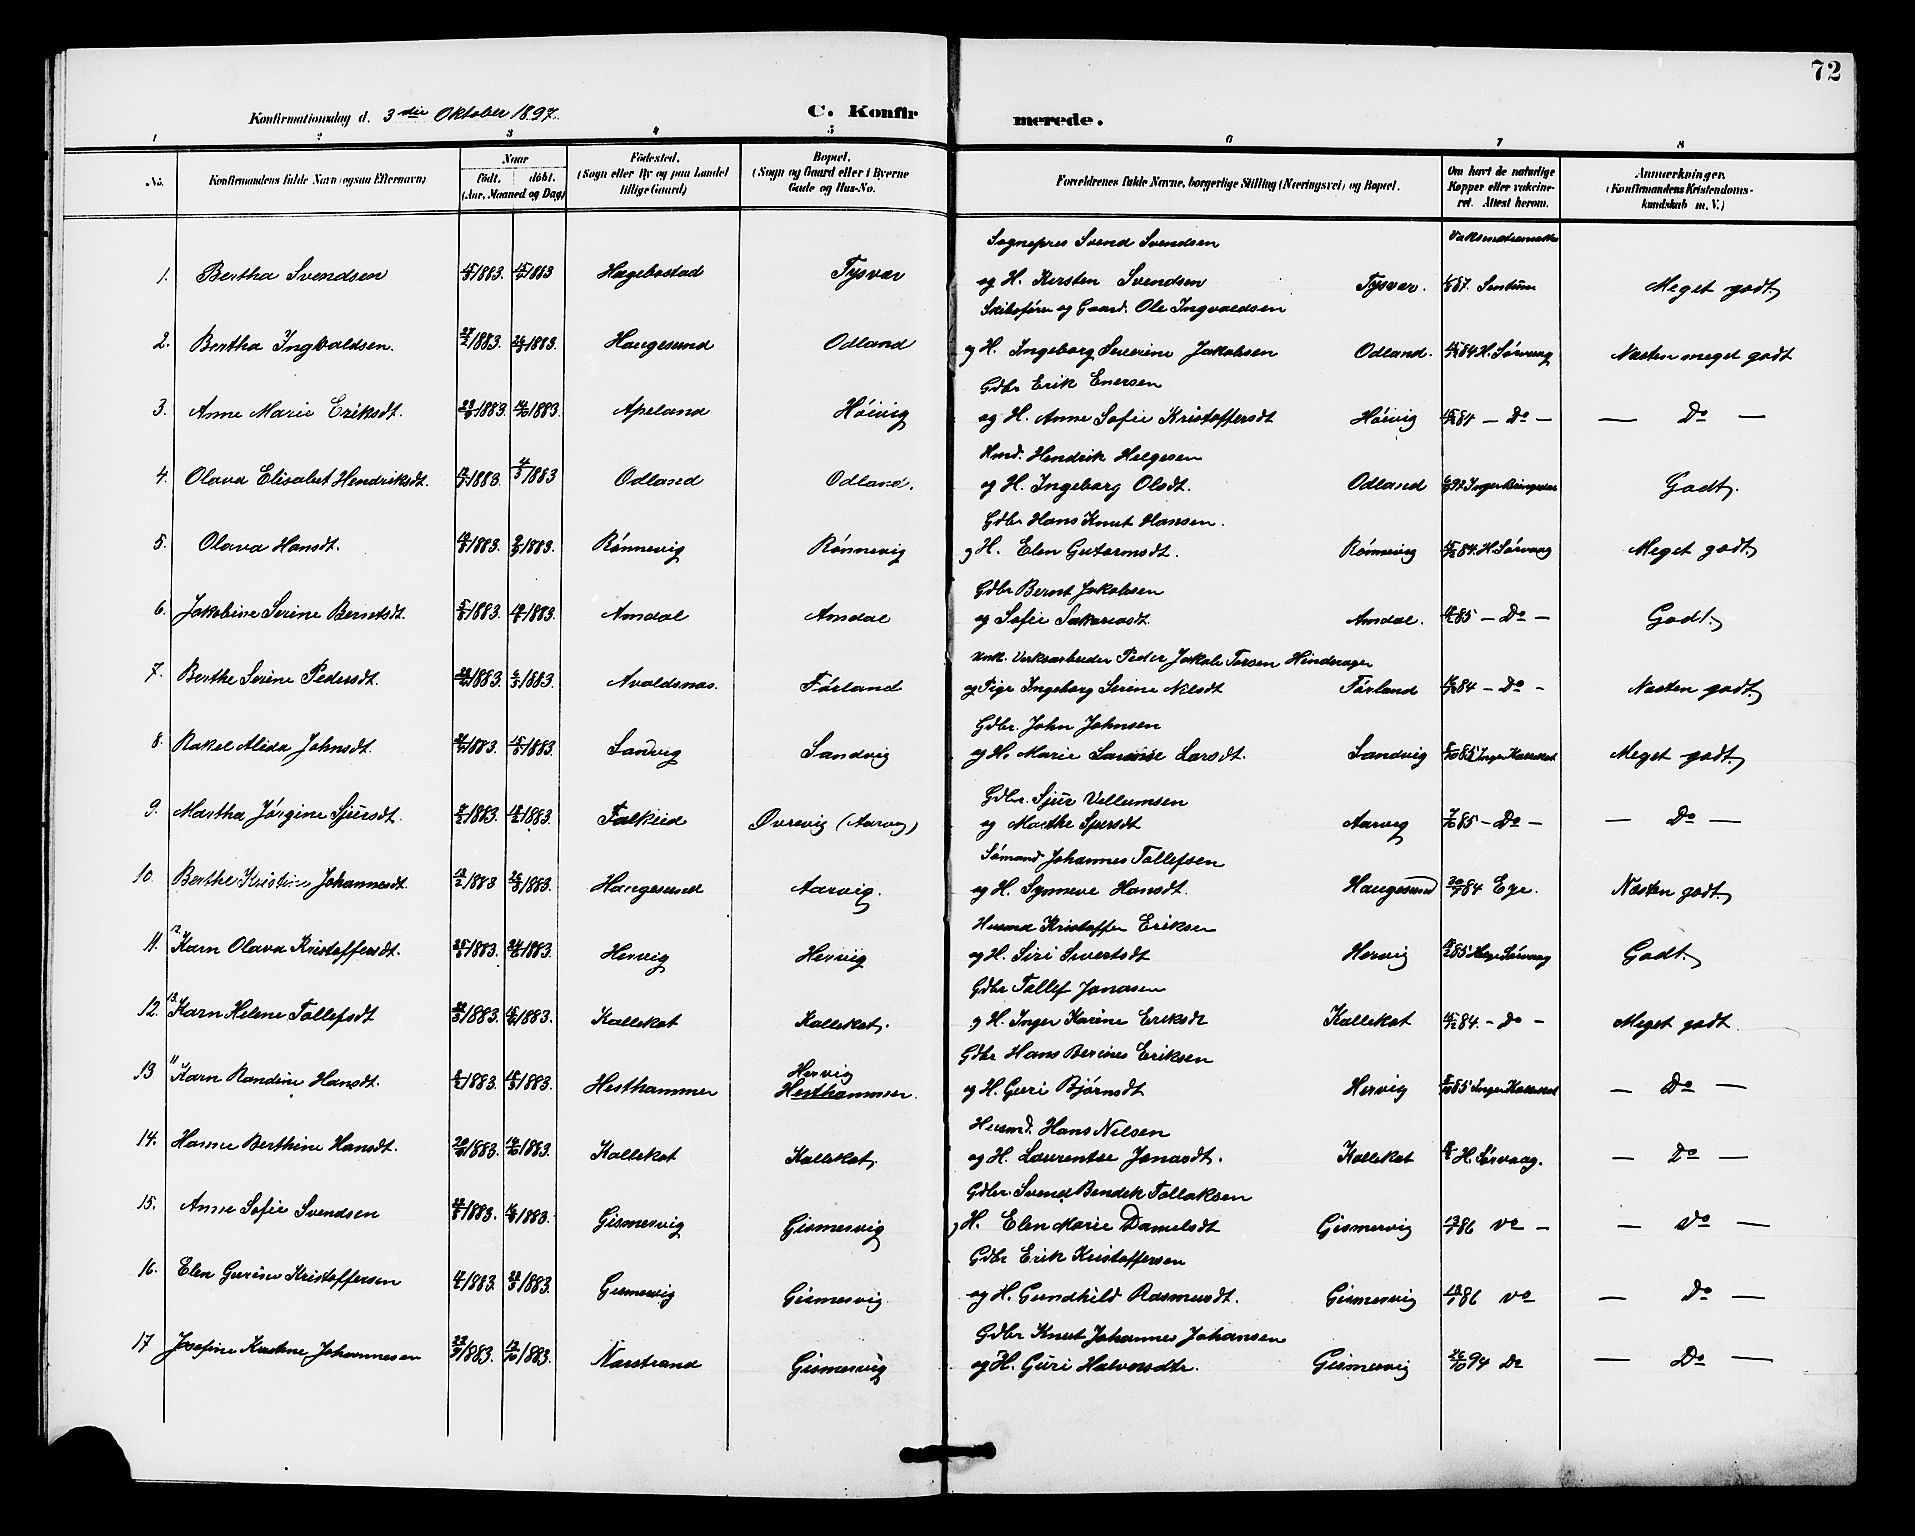 72
Konfirmationsdag d. 3die Oktober 1897.
C. Konfirmerede.
1 2 3 4 5 6 7 8
No. Konfirmandens fulde Navn (ogsaa Efternavn) Naar født. døbt. (Aar, Maaned og Dag) Fødested. (Sogn eller By og paa Landet tillige Gaard) Bopæl. (Sogn og Gaard eller i Byerne Gade og Hus-No. Forældrenes fulde Navne, borgerlige Stilling (Næringsvei) og Bopæl. Om havt de naturlige Kopper eller vakcineret. Attest herom. Anmærkninger. (Konfirmandens Kristendomskundskab m. V.)
Sognepres Svend Svendsen
1. Bertha Svendsen 1883. 1883 Hægebostad Tysvær og H. Kirsten Svendsen Tysvær. 87. Meget godt
Skibsfører og Gaard. Ole Ingvaldsen
2. Bertha Ingvaldsen. 1883. 1883. Haugesund Odland og H. Ingeborg Severine Jakobsen Odland. 84 H. Sørvaag Næsten meget godt
Gdbr Erik Enersen
3. Anne Marie Eriksdt. 1883. 1883. Apeland Høievig og H. Anne Sofie Kristoffersdt Høivig 84 — Do — — Do —
Hmd. Hendrik Helgesen
4. Olava Elisabet Hendriksdt. 1883. 1883 Odland Odland. og H. Ingeborg Olsdt. Odland Godt.
Gdbr Hans Knut Hansen.
5. Olava Hansdt. 1883. 1883. Rønnevig Rønnevig og H. Elen Gutormsdt. Rønnevig 84. H. Sørvaag Meget godt
Gdbr Bernt Jakobsen
6. Jakobine Serine Berntsdt. 1883. 1883. Amdal Amdal og Sofie Sakariasdt. Amdal. 85 — Do — Godt.
Unk. Verksarbeider Peder Jakob Torsen
7. Berthe Serine Pedersdt. 1883. 1883. Avaldsnes. Førland og Pige Ingeborg Serine Nilsdt Førland 84 — Do — Næsten godt.
Gdbr. John Johnsen
8. Rakel Alida Johnsdt. 1883. 1883. Sandvig Sandvig og H. Marie Larsdt. Sandvig 85 Inger Kallekot Meget godt
Gdbr. Sjur Villumsen
9. Martha Jørgine Sjursdt. 1883. 1883. Falkeid Øvrevig (Aarvig) og Marthe Aarvig 85 — Do — — Do —
Sømand Johannes Tollefsen
10. Berthe Kristine Johannesdt. 1883 1883. Haugesund Aarvig. og H. Synneve Hansdt. Haugesund 20/9 84 Ege. Næsten godt.
Husmd Kristoffer Eriksen
11. 12. Karn Olava Kristoffersdt. 1883. 1883. Hervig Hervig og H. Siri Sivertsdt Hervig 85 Sørvaag Godt.
Gdbr Tollef Jonasen
12. 13. Karn Helene Tollefsdt 1883. 1883. Kallekot Kallekot. og H. Inger Karine Eriksdt Kallekot 84. — Do — Meget godt.
Gdbr Hans Berines Eriksen
Hervig
13 11 Karn Randine Hansdt. 1883. 1883. Hesthammer Hesthammer. og H. Guri Bjørnsdt Hervig 85 Inger Kallekot — Do —
Husmd. Hans Nilsen
14. Hanne Berthine Hansdt. 1883. 1883. Kallekot Kallekot. og H. Laurentse Jonasdt. Kallekot H. Sørvaag. — Do —
Gdbr. Svend Bendik Tollaksen
15. Anne Sofie Svendsen 1883. 1883. Gismervig Gismervig og H. Elen Marie Danielsdt Gismervig 86 Do — — Do —
Gdbr Erik Kristoffersen
16. Elen Gurine Kristoffersen 1883. 1883. Gismervig Gismervig og H. Gundhild Rasmusdt. Gismervig 86 Do — Do —
Gdbr Knut Johannes Johansen
17 Josefine Johannesen 1883. 1883. Nærstrand Gismervig og H. Guri Halvorsdtr. Gismervig 26/10 94 Do — Do —